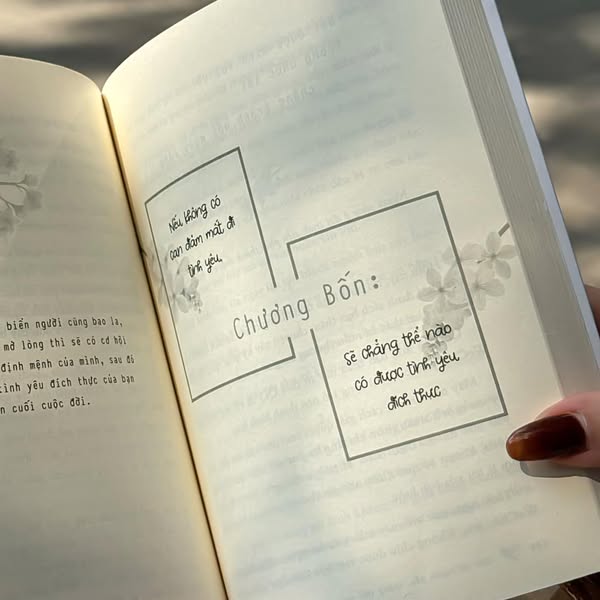 biển người cũng bao la,
mở lòng thì sẽ có cơ hội
định mệnh của mình, sau đó
tình yêu đích thực của bạn
cuối cuộc đời.
Nếu không có
can đảm mất đi
tình yêu,
Chương Bốn:
sẽ chẳng thể nào
có được tình yêu
đích thực